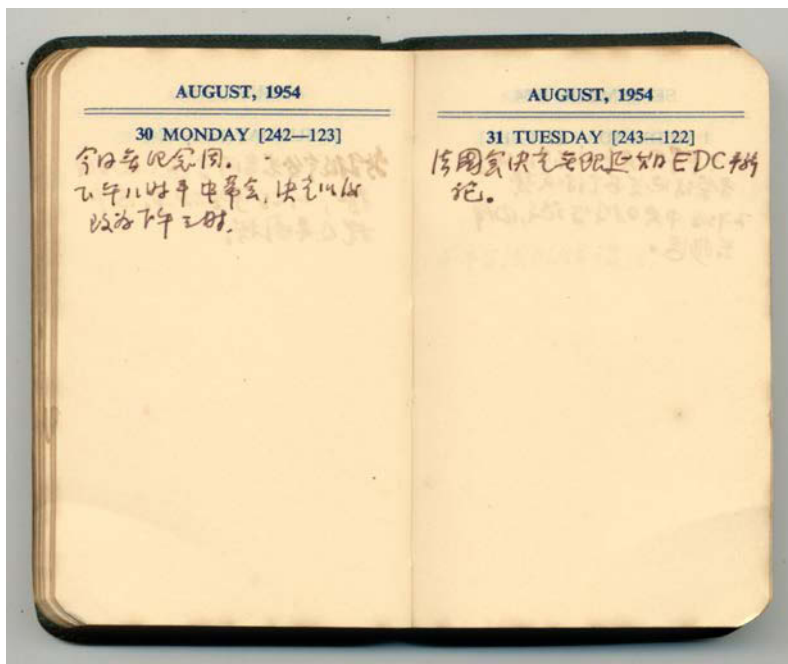 AUGUST, 1954
30 MONDAY [242—123]
今日无纪念周。
下午八时半中常会,决定以后
改为下午三时.
AUGUST, 1954
31 TUESDAY [243—122]
法国会决定无限延期EDC讨
论。